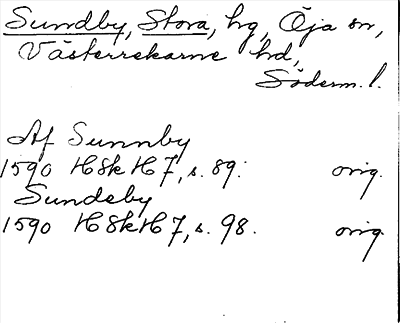 Sundby, Stora, hg, Öja sn,
Västerrekarne hd,
Söderm. l.
Af Sunnby
1590 HSkH 7, s. 89. orig.
Sundeby
1590 HSkH 7, s. 98. orig.